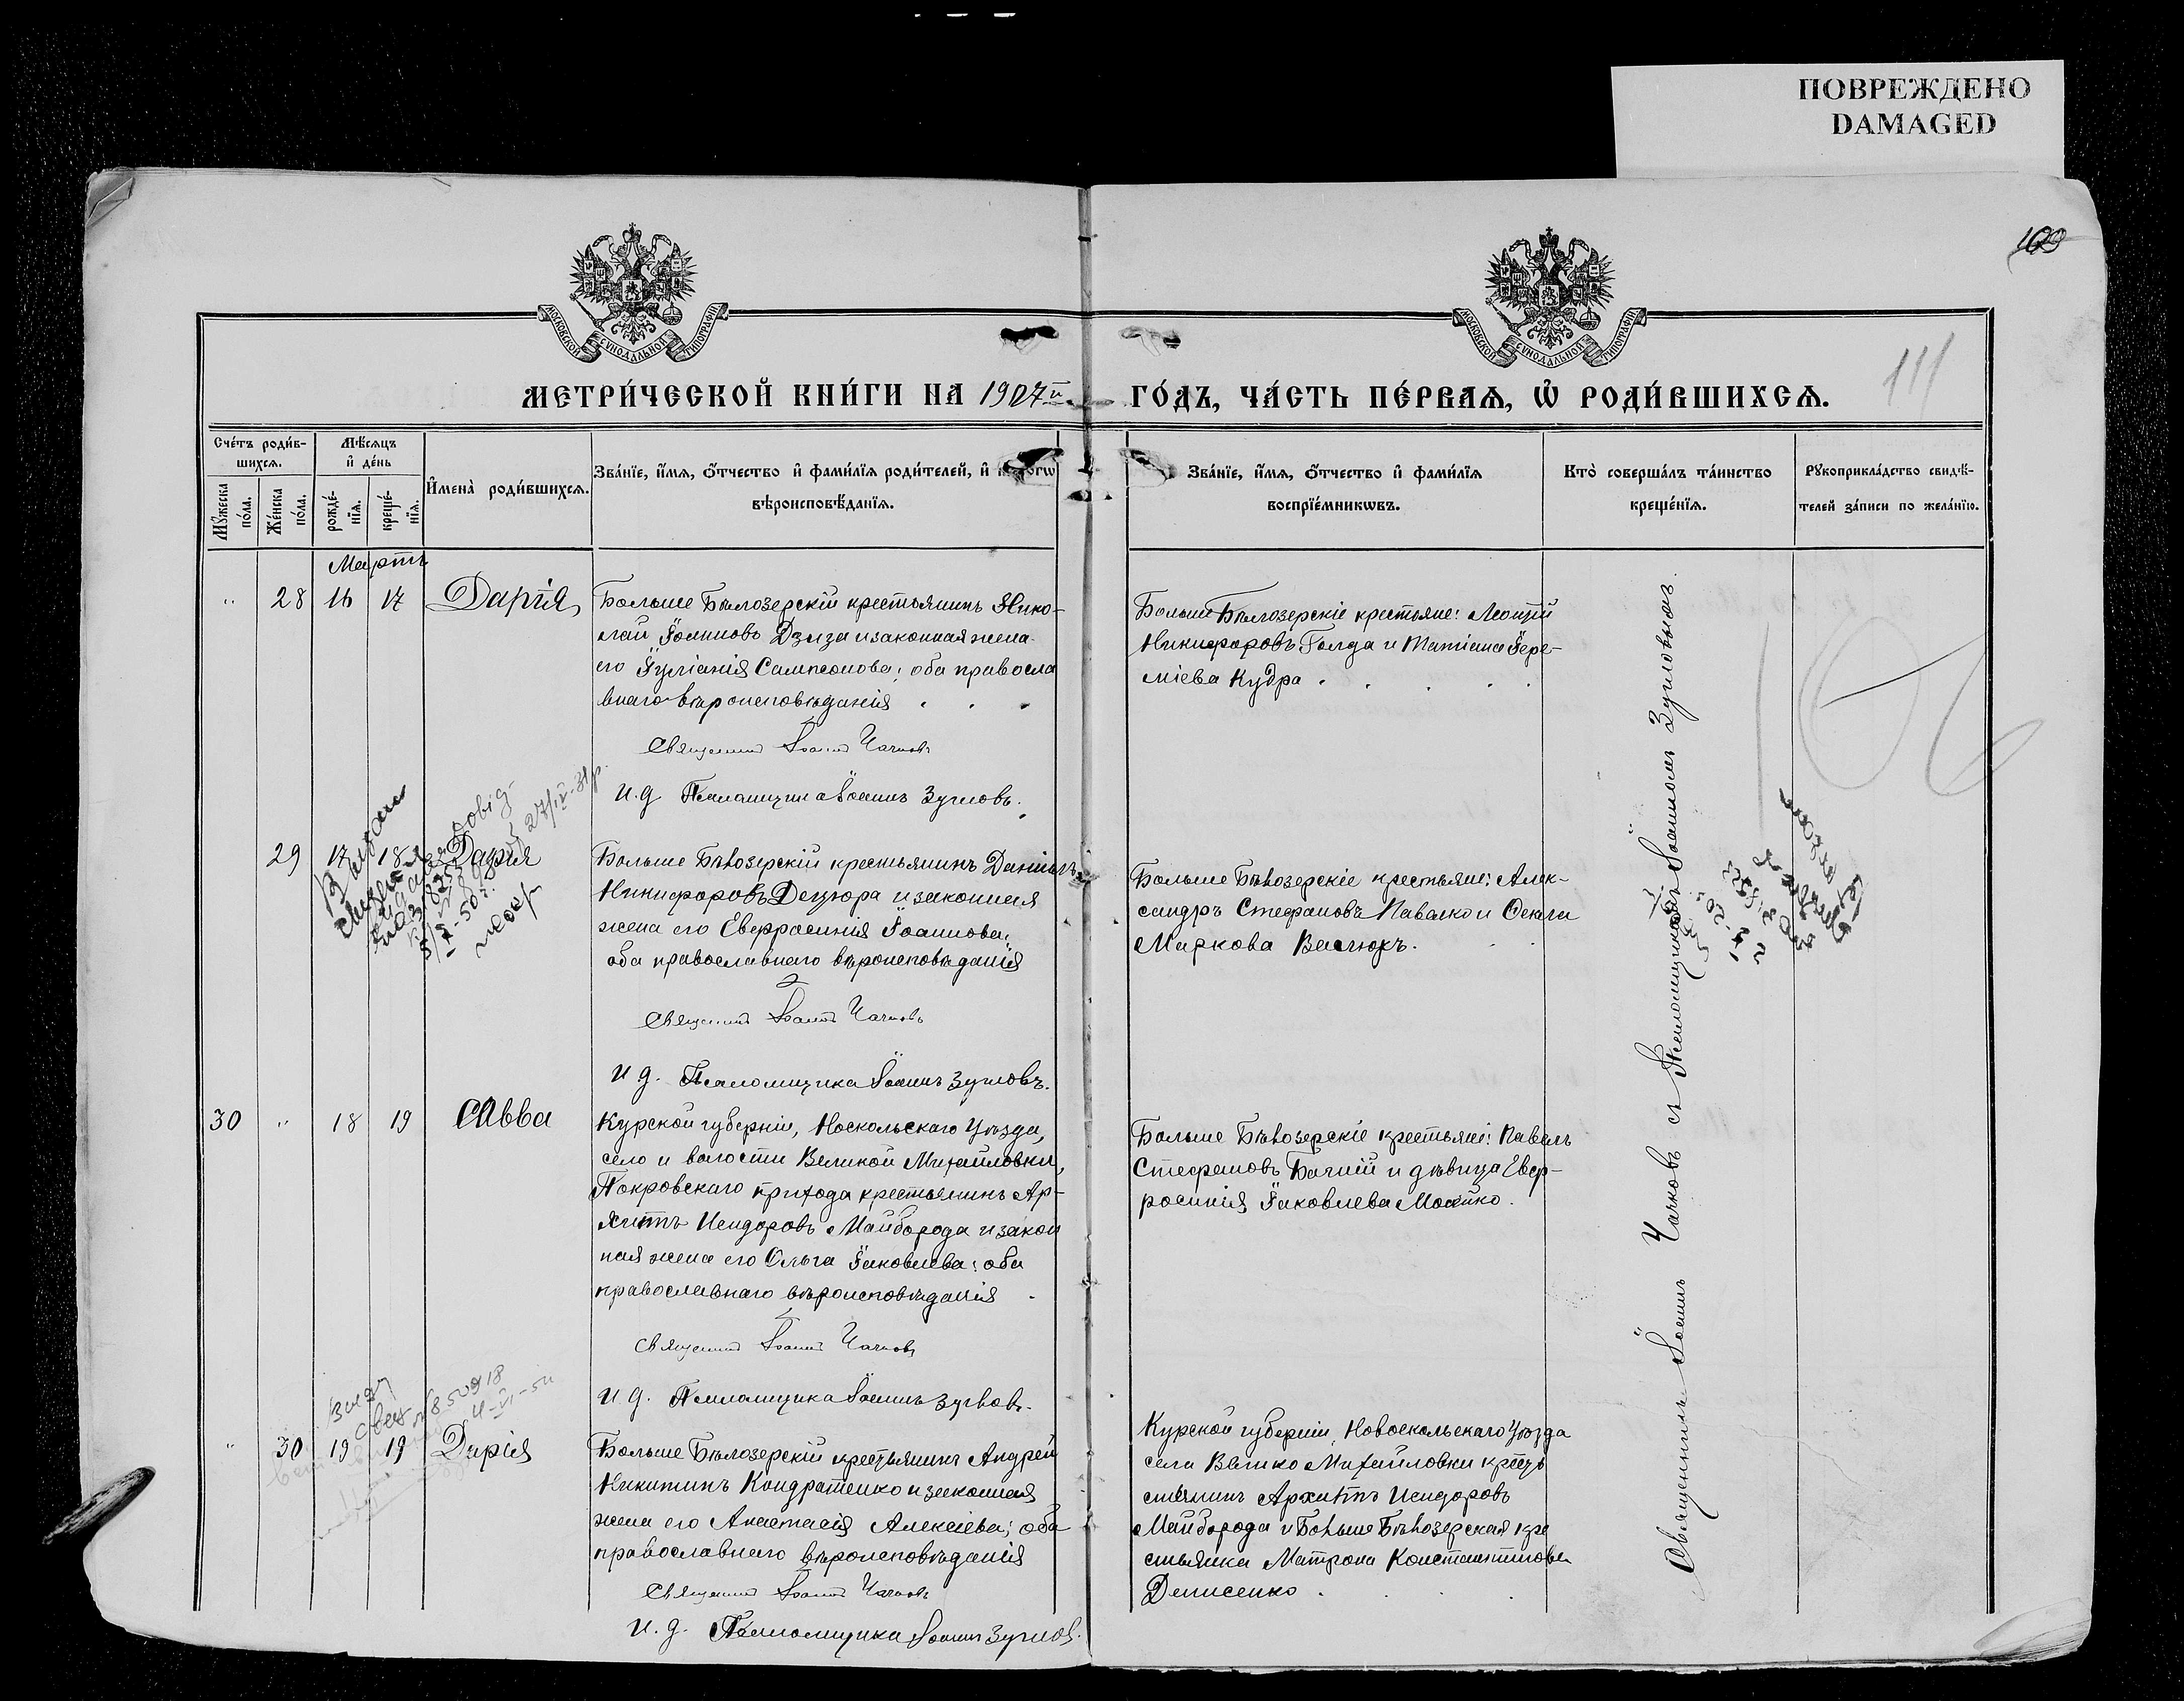 ПОВРЕЖДЕНО
DAMAGED
109
111
МОСКОВСКОЙ СѴНОДАЛЬНОЙ ТИПОГРАФІИ
МОСКОВСКОЙ СѴНОДАЛЬНОЙ ТИПОГРАФІИ
МЕТРИ́ЧЕСКОЙ КНИ́ГИ НА 1907й
ГО́ДЪ, ЧА́СТЬ ПЕ́РВАѦ, Ѡ҆ РОДИ́ВШИХСѦ.
Сче́тъ роди́в-
шихсѧ.
Мѣ́сѧцъ
и҆ де́нь
Мꙋ́жеска
по́ла.
Же́нска
по́ла.
рожде́-
нїѧ.
креще́-
нїѧ.
И҆мена̀ роди́вшихсѧ.
Зва́нїе, и҆́мѧ, ѻ҆́тчество и҆ фами́лїѧ роди́телей, и҆
вѣроисповѣ́данїѧ.
Зва́нїе, и҆́мѧ, ѻ҆́тчество и҆ фами́лїѧ
воспрїе́мникѡвъ.
Кто̀ соверша́лъ та́инство
креще́нїѧ.
Рꙋкоприкла́дство свидѣ́-
телей за́писи по жела́нїю.
Мартъ
" 28 16 17 Дарія
Больше Бѣлозерскій крестьянинъ Нико-
лай Іоанновъ Дзыза и законная жена
его Іуліанія Сампсонова; оба правосла
внаго вѣроисповѣданія
Священникъ Іоаннъ Чачковъ
И. д. Псаломщика Іоаннъ Зугловъ.
Больше Бѣлозерскіе крестьяне: Леонтій
Никифоровъ Голда и Татіана Іере-
міева Кудра.
29 17 18 Дарія
27/IV-31р.
Больше Бѣлозерскій крестьянинъ Даніилъ
Никифоровъ Дезюра и законная
жена его Евфросинія Іоаннова;
оба православнаго вѣроисповѣданія
Священникъ Іоаннъ Чачковъ
И. д. Псаломщика Іоаннъ Зугловъ.
Больше Бѣлозерскіе крестьяне: Алек-
сандръ Стефановъ Павалко и Ѳекла
Маркова Васюкъ.
30 " 18 19 Савва
Курской губерніи, Носкольскаго Уѣзда,
село и волости Великой Михайловки,
Покровскаго прихода крестьянинъ Ар-
хиппъ Исидоровъ Майборода и закон
ная жена его Ольга Іаковлева; оба
православнаго вѣроисповѣданія
Священникъ Іоаннъ Чачковъ
И. д. Псаломщика Іоаннъ Зугловъ.
Больше Бѣлозерскіе крестьяне: Павелъ
Стефановъ Бачий и дѣвица Евф-
росинія Іаковлева Мошко.
" 30 19 19 Дарія
Больше Бѣлозерскій крестьянинъ Андрей
Никитинъ Кондратенко и законная
жена его Анастасія Алексіева; оба
православнаго вѣроисповѣданія
Священникъ Іоаннъ Чачковъ
И. д. Псаломщика Іоаннъ Зугловъ.
Курской губерніи, Новоскольскаго Уѣзда
села Велико Михайловки кресть
стьянинъ Архиппъ Исидоровъ
Майборода и Больше Бѣлозерская кре
стьянка Матрона Константинова
Денисенко.
Священникъ Іоаннъ Чачковъ съ Псаломщикомъ Іоанномъ Зугловымъ.